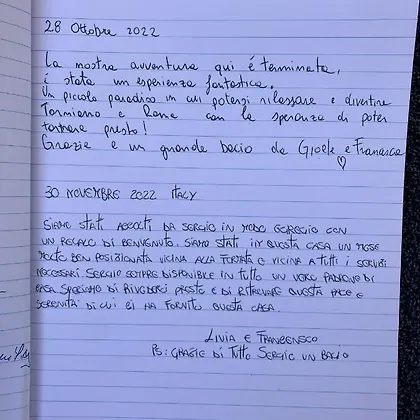 28 Ottobre 2022
La nostra avventura qui é terminata,
é stata un esperienza fantastica.
Un piccolo paradiso in cui potersi rilassare e divertire
Torniamo a Roma con la speranza di poter
tornare presto!
Grazie e un grande bacio da Gioele e Francesca
30 NOVEMBRE 2022 ITALY
SIAMO STATI ACCOLTI DA SERGIO IN MODO EGREGIO CON
UN REGALO DI BENVENUTO. SIAMO STATI IN QUESTA CASA UN MESE
MOLTO BEN POSIZIONATA VICINA ALLA FERMATA E VICINA A TUTTI I SERVIZI
NECESSARI. SERGIO SEMPRE DISPONIBILE IN TUTTO UN VERO PADRONE DI
CASA SPERIAMO DI RIVEDERCI PRESTO E DI RITROVARE QUESTA PACE E
SERENITÀ DI CUI CI HA FORNITO QUESTA CASA.
LIVIA E FRANCESCO
PS: GRAZIE DI TUTTO SERGIO UN BACIO